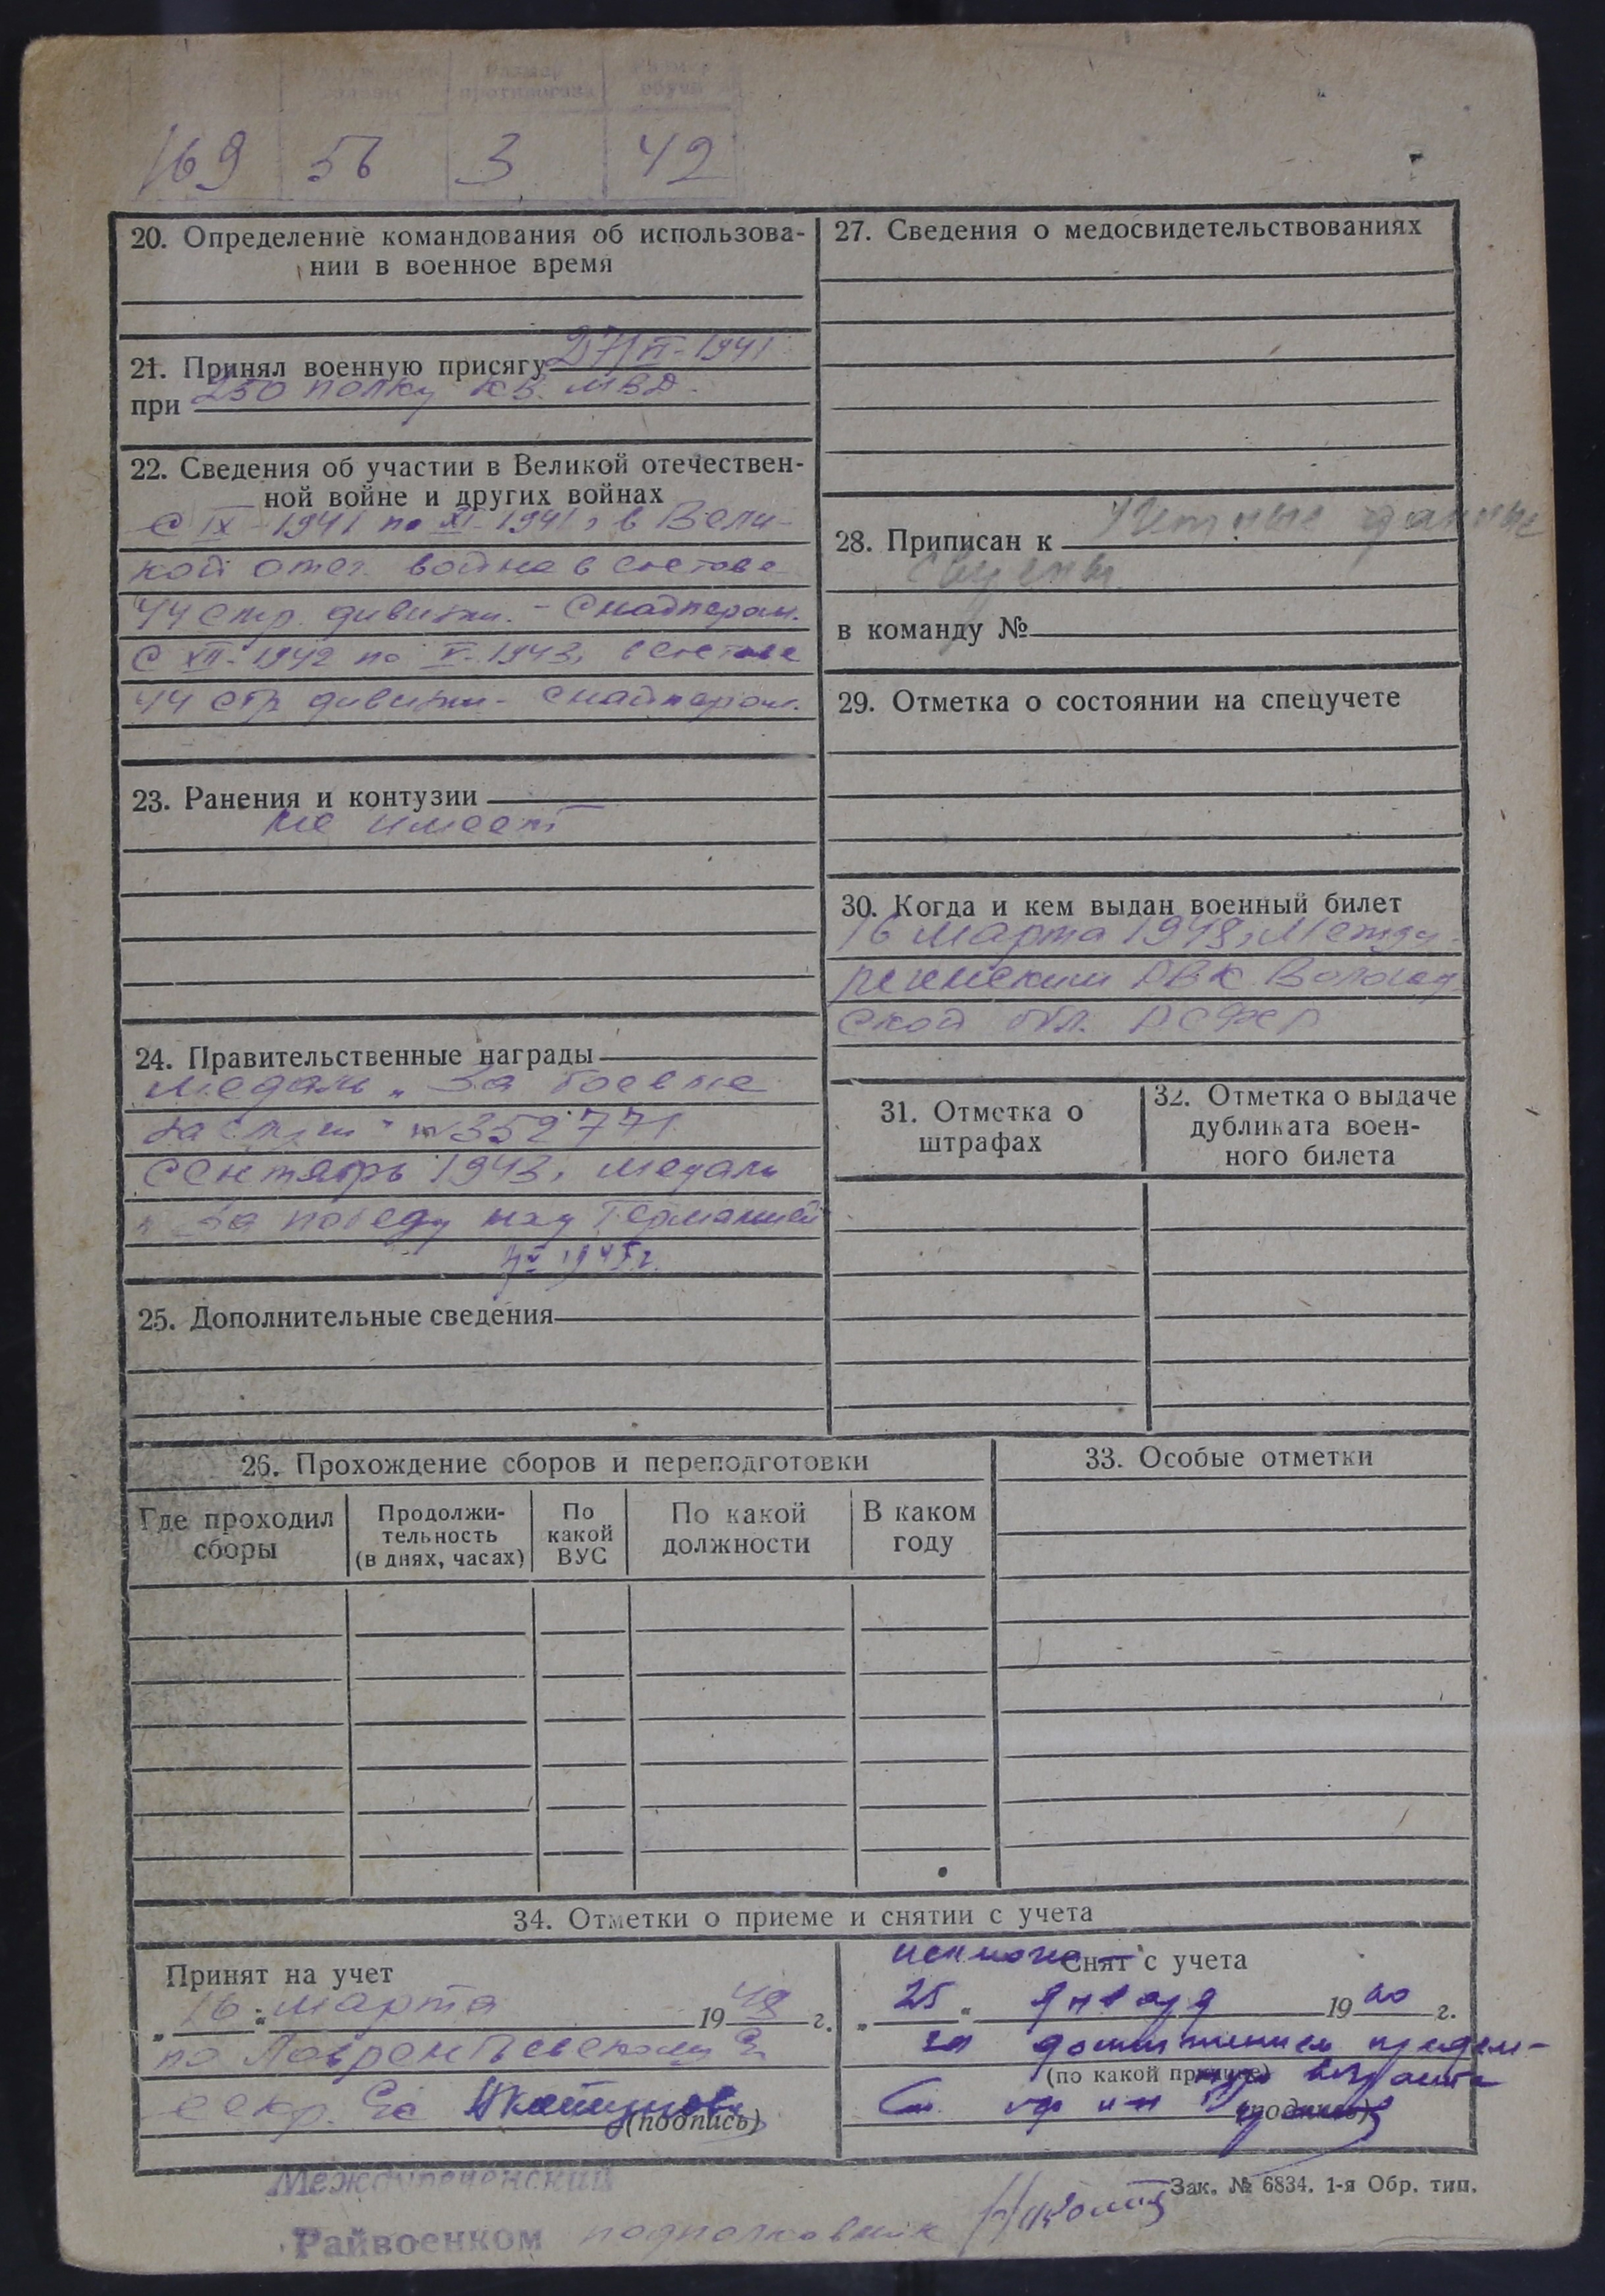 Размер противогаза
169 56 3 42
20. Определение командования об использова-
нии в военное время
21. Принял военную присягу 27/VI-1941
при 250 полку КВ. МВД.
22. Сведения об участии в Великой отечествен-
ной войне и других войнах
С IX-1941 по XI-1941, в Вели-
кой отеч. война в составе
44 стр. дивизии. - Снайпером.
С XII-1942 по V-1943, в составе
44 стр дивизии - снайпером.
23. Ранения и контузии
не имеет
24. Правительственные награды
медаль „За боевые
заслуги" № 352771
сентябрь 1943, медаль
„За победу над Германией
1945 г.
25. Дополнительные сведения
27. Сведения о медосвидетельствованиях
28. Приписан к Учетные данные
сверены
в команду №
29. Отметка о состоянии на спецучете
30. Когда и кем выдан военный билет
16 марта 1948, Между-
реченским РВК Вологод
ской обл. РСФСР
31. Отметка о
штрафах
32. Отметка о выдаче
дубликата воен-
ного билета
26. Прохождение сборов и переподготовки
Где проходил
сборы
Продолжи-
тельность
(в днях, часах)
По
какой
ВУС
По какой
должности
В каком
году
33. Особые отметки
34. Отметки о приеме и снятии с учета
Принят на учет
„16" марта 1948 г.
по Лаврентьевскому
секр.
(подпись)
исключен Снят с учета
„25" января 1960 г.
за достижением предель-
(по какой причине) ного возраста
(подпись)
Зак. № 6834. 1-я Обр. тип.
Междуреченский
Райвоенком подполковник